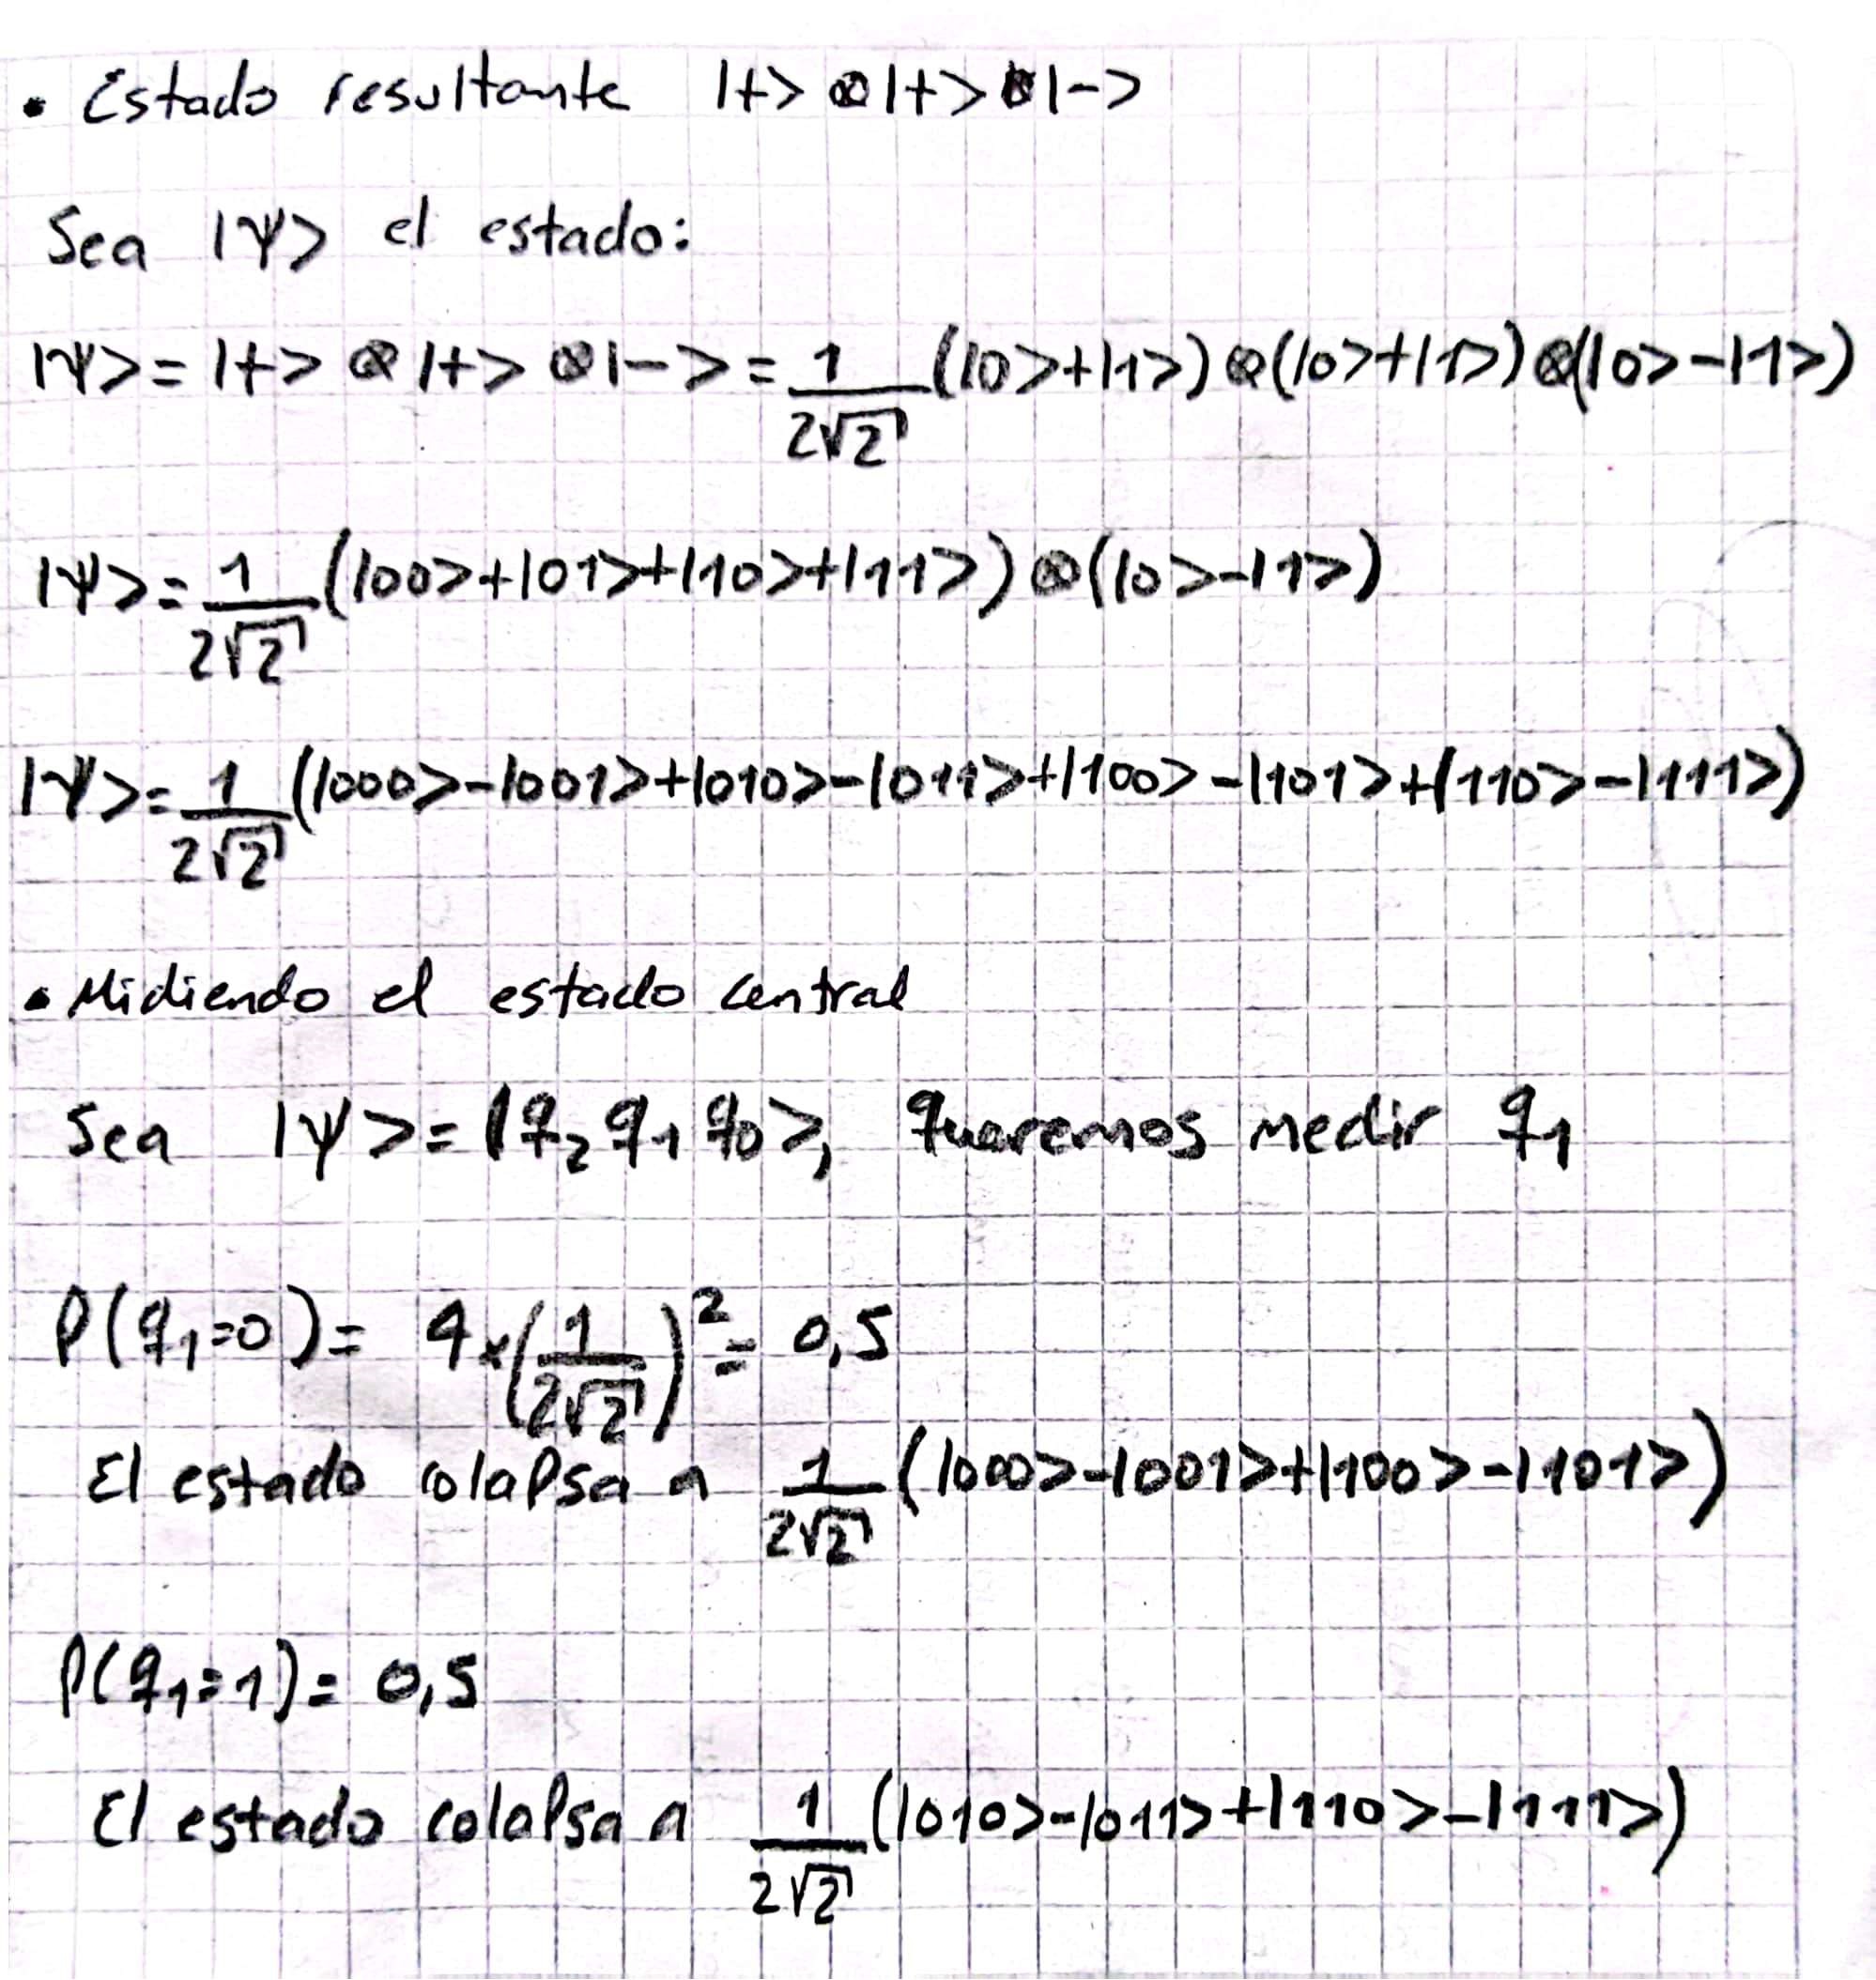 • Estado resultante |+> ⊗ |+> ⊗ |->
Sea |ψ> el estado:
|ψ> = |+> ⊗ |+> ⊗ |-> = 1/(2√2) (|0>+|1>) ⊗ (|0>+|1>) ⊗ (|0>-|1>)
|ψ> = 1/(2√2) (|00>+|01>+|10>+|11>) ⊗ (|0>-|1>)
|ψ> = 1/(2√2) (|000>-|001>+|010>-|011>+|100>-|101>+|110>-|111>)
• Midiendo el estado central
Sea |ψ> = |q₂ q₁ q₀>, queremos medir q₁
P(q₁=0) = 4×(1/(2√2))² = 0,5
El estado colapsa a 1/(2√2) (|000>-|001>+|100>-|101>)
P(q₁=1) = 0,5
El estado colapsa a 1/(2√2) (|010>-|011>+|110>-|111>)